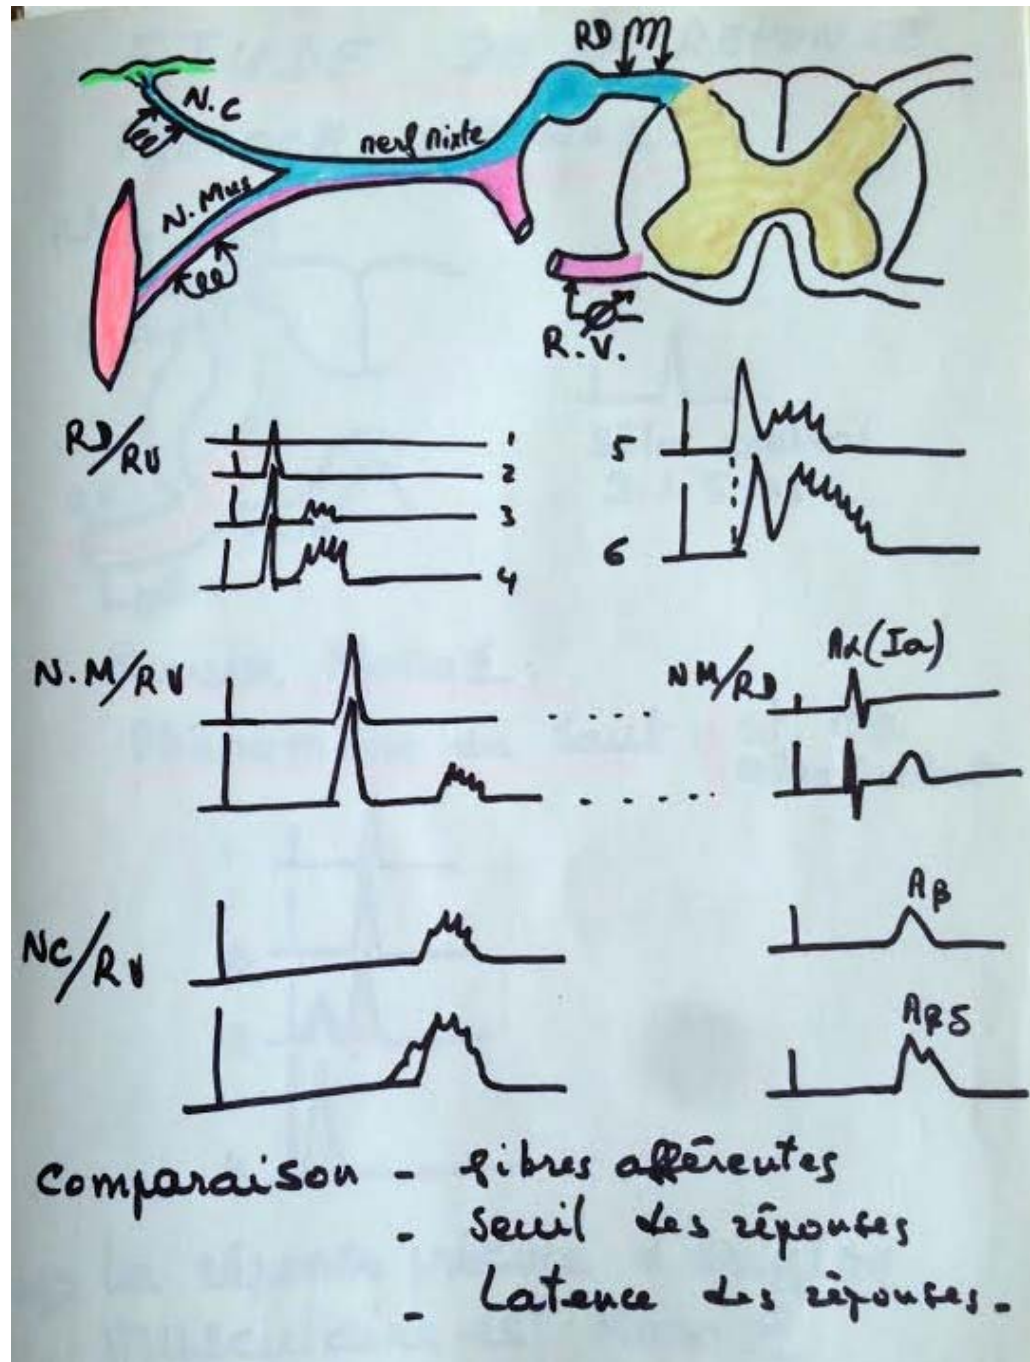 RD
N.C
nerf mixte
N.Mus
R.V.
RD/RV
1
2
3
4
5
6
N.M/RV
NM/RD
Aα(Ia)
NC/RV
Aβ
Aβδ
Comparaison - fibres afférentes
- Seuil des réponses
- Latence des réponses.